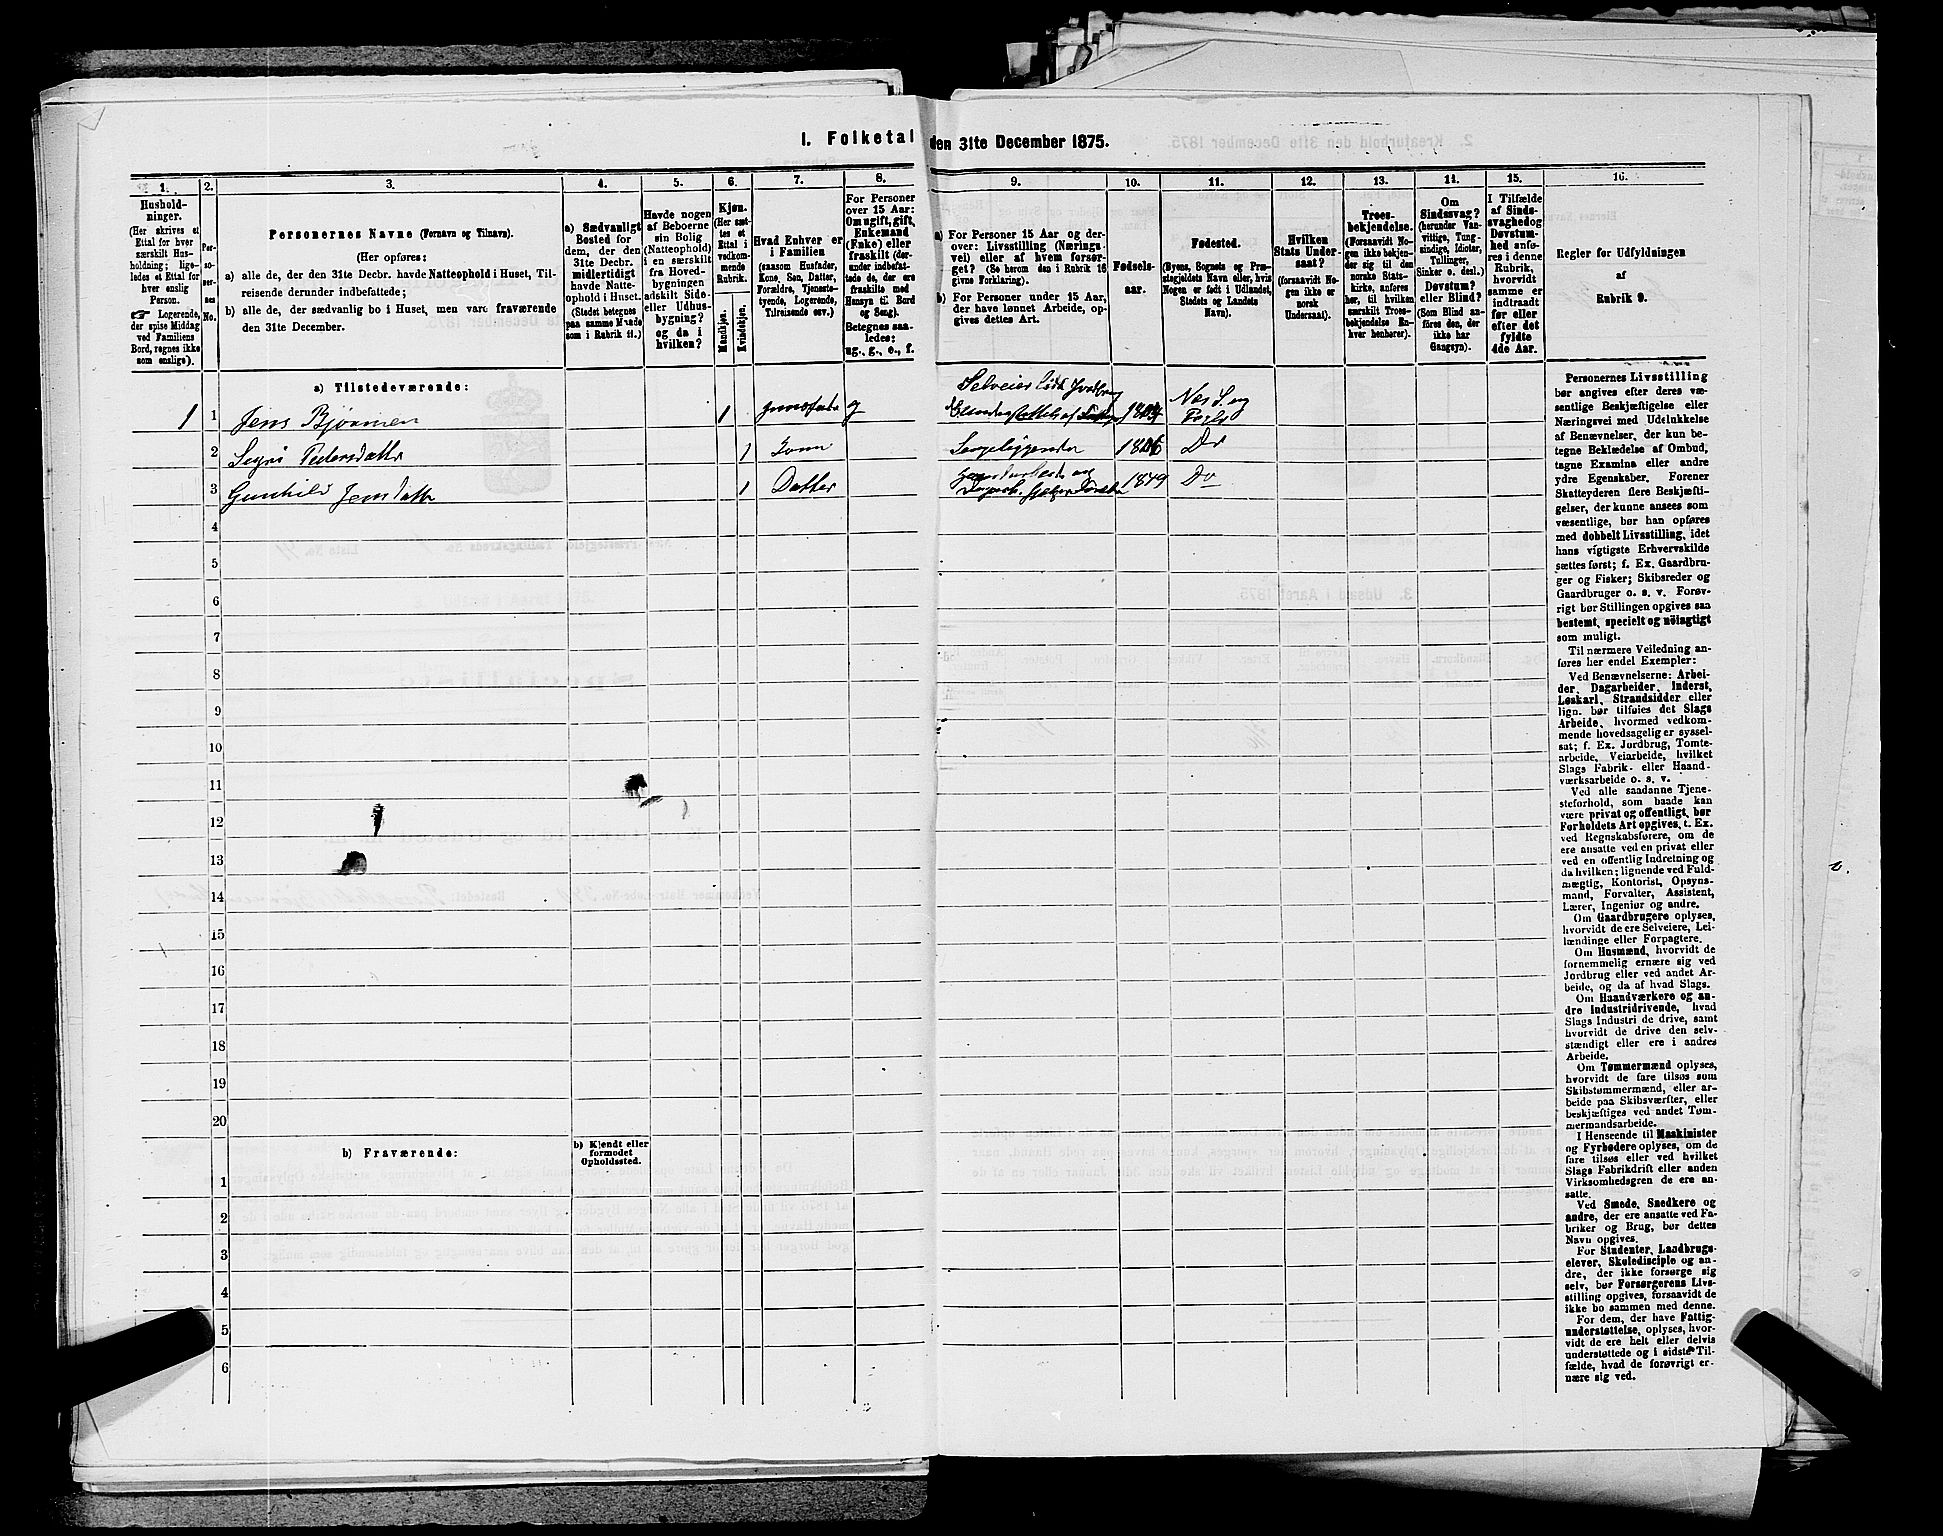 I. Folketal den 31te December 1875.
1.
Hushold-
ninger.
(Her skrives et
Ettal for hver
særskilt Hus-
holdning; lige-
ledes et Ettal for
hver enslig
Person.
☞ Logerende,
der spise Middag
ved Familiens
Bord, regnes ikke
som enslige).
2.
Per-
so-
ner-
nes
No.
3.
Personernes Navne (Fornavn og Tilnavn).
(Her opføres:
a) alle de, der den 31te Decbr. havde Natteophold i Huset, Til-
reisende derunder indbefattede;
b) alle de, der sædvanlig bo i Huset, men vare fraværende
den 31te December.
4.
a) Sædvanligt
Bosted for
dem, der den
31te Decbr.
midlertidigt
havde Natte-
ophold i Huset.
(Stedet betegnes
paa samme Maade
som i Rubrik 11.)
5.
Havde nogen
af Beboerne
sin Bolig
(Natteophold)
i en særskilt
fra Hoved-
bygningen
adskilt Side-
eller Udhus-
bygning?
og da i
hvilken?
6.
Kjøn.
(Her sæt-
tes et
Ettal i
vedkom-
mende
Rubrik.
Mandkjøn.
Kvindekjøn.
7.
Hvad Enhver er
i Familien
(saasom Husfader,
Kone, Søn, Datter,
Forældre, Tjeneste-
tyende, Logerende,
Tilreisende osv.)
8.
For Personer
over 15 Aar:
Om ugift, gift,
Enkemand
(Enke) eller
fraskilt (der-
under indbefat-
tede de, der ere
fraskilte med
Hensyn til Bord
og Seng).
Betegnes saa-
ledes:
ug., g., e., f.
9.
a) For Personer 15 Aar og der-
over: Livsstilling (Nærings-
vei) eller af hvem forsør-
get? (Se herom den i Rubrik 16
givne Forklaring).
b) For Personer under 15 Aar,
der have lønnet Arbeide, op-
gives dettes Art.
10.
Fødsels-
aar.
11.
Fødested.
(Byens, Sognets og Præ-
stegjeldets Navn eller, hvis
Nogen er født i Udlandet,
Stedets og Landets
Navn).
12.
Hvilken
Stats Under-
saat?
(forsaavidt No-
gen ikke er
norsk
Undersaat).
13.
Troes-
bekjendelse.
(Forsaavidt No-
gen ikke bekjen-
der sig til den
norske Stats-
kirke, anføres
her, til hvilken
særskilt Troes-
bekjendelse En-
hver henhører).
14.
Om
Sindssvag?
(herunder Van-
vittige, Tung-
sindige, Idioter,
Tullinger,
Sinker o. desl.)
Døvstum?
eller Blind?
(Som Blind an-
føres den, der
ikke har
Gangsyn).
15.
I Tilfælde
af Sinds-
svaghed og
Døvstum-
hed anfø-
res i denne
Rubrik,
hvorvidt
samme er
indtraadt
før eller
efter det
fyldte
4de Aar.
16.
Regler for Udfyldningen
af
Rubrik 9.
a) Tilstedeværende:
1 1 Jens Bjørnsen 1 g Selveier 1804 Nes S. og
2 Sigri Pedersdatter 1 Kone Sengeliggende 1806 Do
3 Gunhild Jensdatter 1 Datter 1849 Do
4
5
6
7
8
9
10
11
12
13
14
15
16
17
18
19
20
b) Fraværende:
b) Kjendt eller
formodet
Opholdssted.
1
2
3
4
5
6
Personernes Livsstilling
bør angives efter deres væ-
sentlige Beskjæftigelse eller
Næringsvei med Udelukkelse
af Benævnelser, der kun be-
tegne Beklædelse af Ombud,
tagne Examina eller andre
ydre Egenskaber. Forener
Skatteyderen flere Beskjæfti-
gelser, der kunne ansees som
væsentlige, bør han opføres
med dobbelt Livsstilling, idet
hans vigtigste Erhvervskilde
sættes først; f. Ex. Gaardbru-
ger og Fisker; Skibsreder og
Gaardbruger o. s. v. Forøv-
rigt bør Stillingen opgives saa
bestemt, specielt og nöiagtigt
som muligt.
Til nærmere Veiledning an-
føres her endel Exempler:
Ved Benævnelserne: Arbei-
der, Dagarbeider, Inderst,
Løskarl, Strandsidder eller
lign. bør tilføies det Slags
Arbeide, hvormed vedkom-
mende hovedsagelig er syssel-
sat; f. Ex. Jordbrug, Tomte-
arbeide, Veiarbeide, hvilket
Slags Fabrik- eller Haand-
værksarbeide o. s. v.
Ved alle saadanne Tjene-
steforhold, som baade kan
være privat og offentligt, bør
Forholdets Art opgives, t. Ex.
ved Regnskabsførere, om de
ere ansatte ved en privat eller
ved en offentlig Indretning og
da hvilken; lignende ved Fuld-
mægtig, Kontorist, Opsyns-
mand, Forvalter, Assistent,
Lærer, Ingeniør og andre.
Om Gaardbrugere oplyses,
hvorvidt de ere Selveiere, Lei-
lændinge eller Forpagtere.
Om Husmænd, hvorvidt de
fornemmelig ernære sig ved
Jordbrug eller ved andet Ar-
beide, og da af hvad Slags.
Om Haandværkere og an-
dre Industridrivende, hvad
Slags Industri de drive, samt
hvorvidt de drive den selv-
stændigt eller ere i andres
Arbeide.
Om Tømmermænd oplyses,
hvorvidt de fare tilsøs som
Skibstømmermænd, eller ar-
beide paa Skibsværfter, eller
beskjæftiges ved andet Tøm-
mermandsarbeide.
I Henseende til Maskinister
og Fyrbødere oplyses, om de
fare tilsøs eller ved hvilket
Slags Fabrikdrift eller anden
Virksomhedsgren de ere an-
satte.
Ved Smede, Snedkere og
andre, der ere ansatte ved Fa-
briker og Brug, bør dettes
Navn opgives.
For Studenter, Landbrugs-
elever, Skoledisciple og an-
dre, der ikke forsørge sig
selv, bør Forsørgerens Livs-
stilling opgives, forsaavidt de
ikke bo sammen med denne.
For dem, der have Fattig-
understøttelse, oplyses, hvor-
vidt de ere helt eller delvis
understøttede og i sidste Til-
fælde, hvad de forøvrigt er-
nære sig ved.